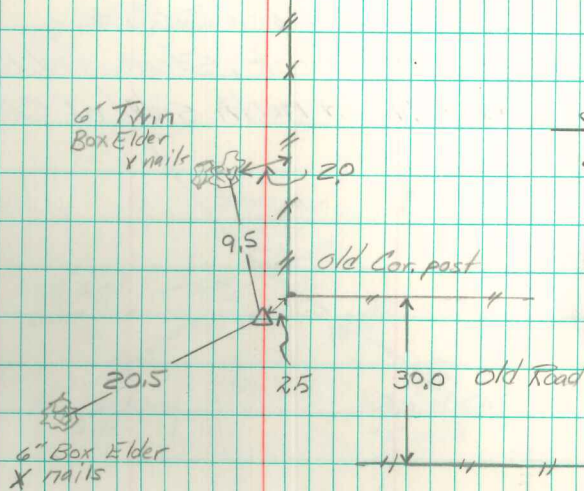 6" Twin
Box Elder
x nails
2.0
9.5
Old Cor. post
20.5
2.5
30.0 Old Road
6" Box Elder
X nails